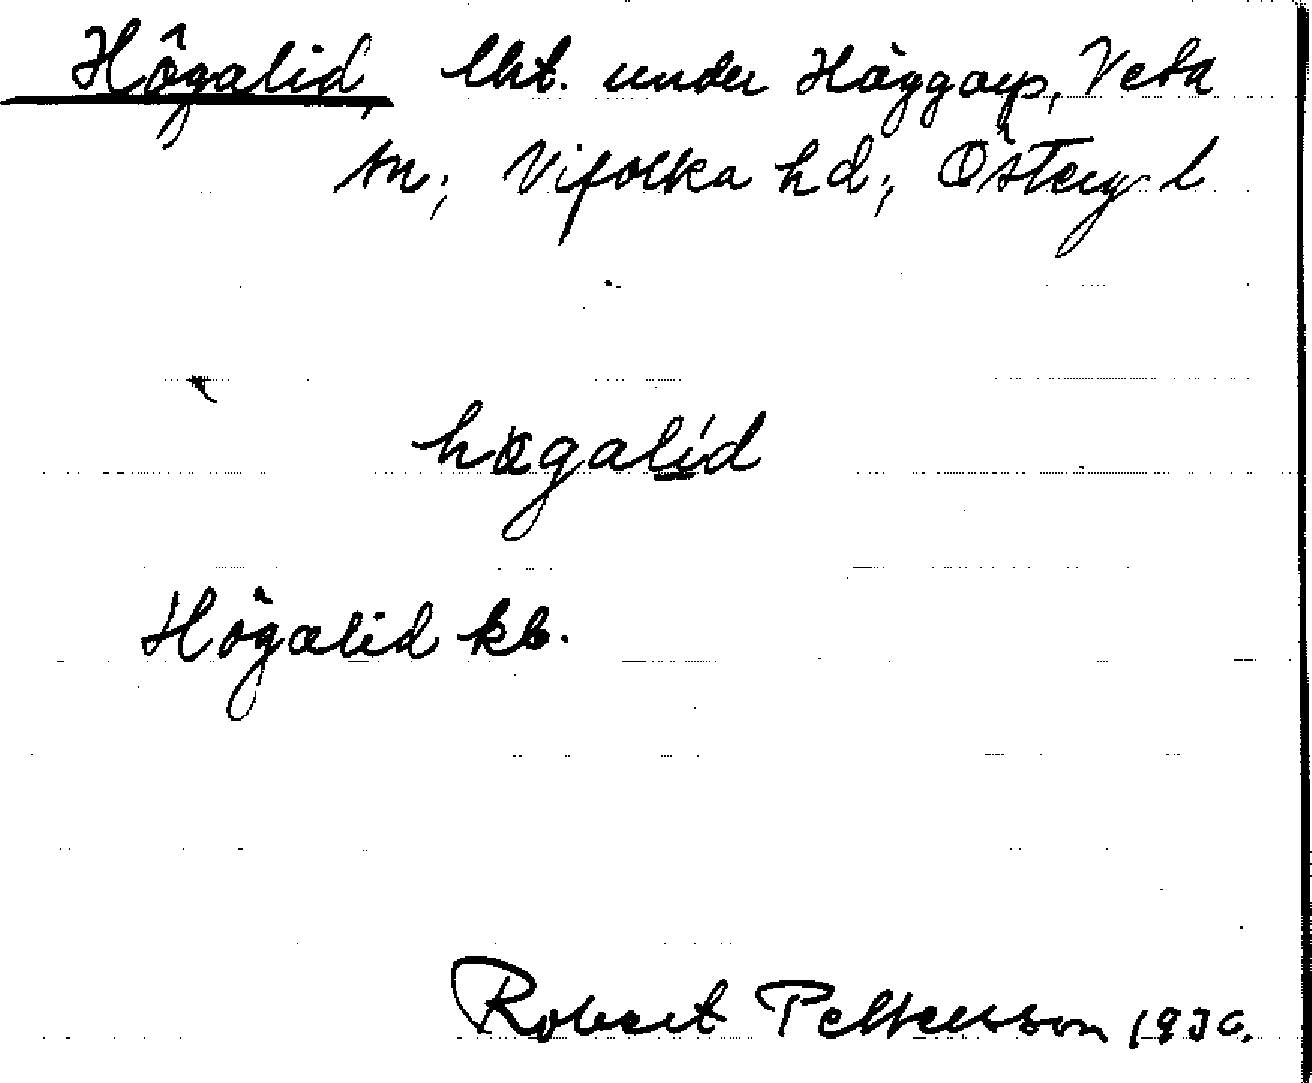 Högalid, lht. under Häggarp, Veta
sn; Vifolka hd; Österg. l
högalid
Högalid kb.
Robert Pettersson 1930.